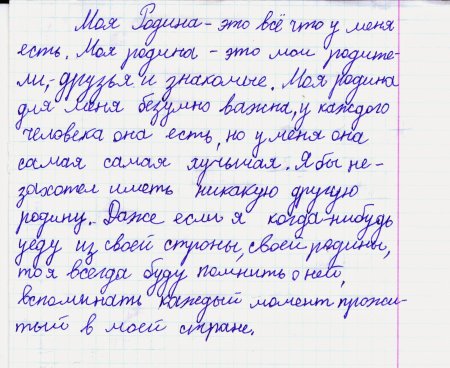 Моя Родина - это всё что у меня
есть. Моя родина - это мои родите-
ли,- друзья и знакомые. Моя родина
для меня безумно важна, у каждого
человека она есть, но у меня она
самая самая лучьшая. Я бы не-
захотел иметь никакую другую
родину. Даже если я когда-нибудь
уеду из своей строны, своей родины,
то я всегда буду помнить о ней,
вспоминать каждый момент прожи-
тый в моей стране.